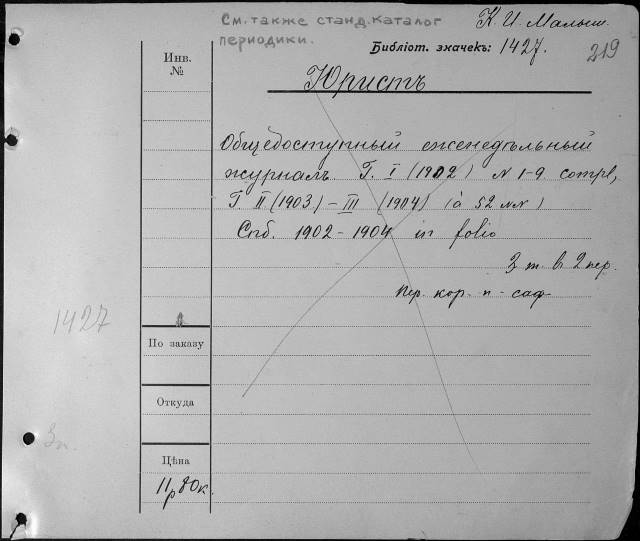 См. также станд. каталог
периодики.
К. И. Малыш.
Библіот. значекъ: 1427.
219
Инв.
№
Юристъ
Общедоступный еженедѣльный
журналъ Г. I (1902) N 1-9 compl,
Г. II (1903) – III (1904) (à 52 NN)
Спб. 1902 - 1904 in folio
3 т. в. 2 пер.
пер. кор. п- саф
1427
По заказу
Откуда
3п.
Цѣна
11 р 80 к.